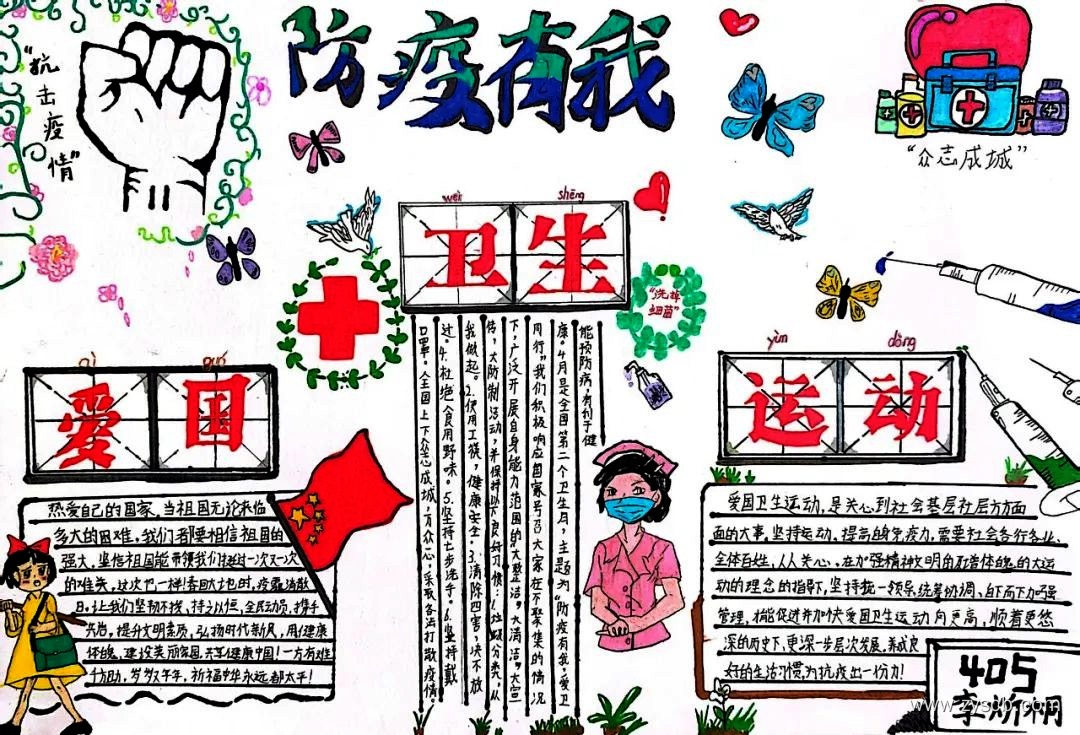 防疫有我
“抗击疫情”
“众志成城”
wèi shēng
卫生
“洗掉
细菌”
能预防病，有利于健
康。4月是全国第二个卫生月，主题为“防疫有我，爱卫
同行”我们积极响应国家号召大家在不聚集的情况
下，广泛开展自身能力范围的大整洁，大清洁，大宣
传，大防制活动，并保持以下良好习惯：1.垃圾分类，从
我做起。2.使用工筷，健康安全。3.清除四害，决不放
过。4.杜绝食用野味。5.坚持七步洗手。6.坚持戴
口罩。全国上下众志成城，万众一心，采取各法打散疫情。
ài guó
爱国
热爱自己的国家、当祖国无论来临
多大的困难，我们都要相信祖国的
强大，坚信祖国能带领我们越过一次又一次
的难关，这次也一样！春回大地时，疫霾消散
日，让我们坚韧不拔，持之以恒，全民动员，携手
共治，提升文明素质，弘扬时代新风，用健康
体魄，建设美丽家园，共享健康中国！一方有难
十方助，岁岁又年年，祈福中华永远都太平！
yùn dòng
运动
爱国卫生运动，是关心到社会基层社层方方面
面的大事，坚持运动，提高自身免疫力，需要社会各行各业、
全体百姓，人人关心，在加强精神文明的和善体魄的大运
动的理念的指导下，坚持统一领导，统筹协调，自下而下加强
管理，才能促进并加快爱国卫生运动向更高，顺着更悠
深的历史下，更深一步层次发展，养成良
好的生活习惯，为抗疫出一份力！
405
www.zysdb.com